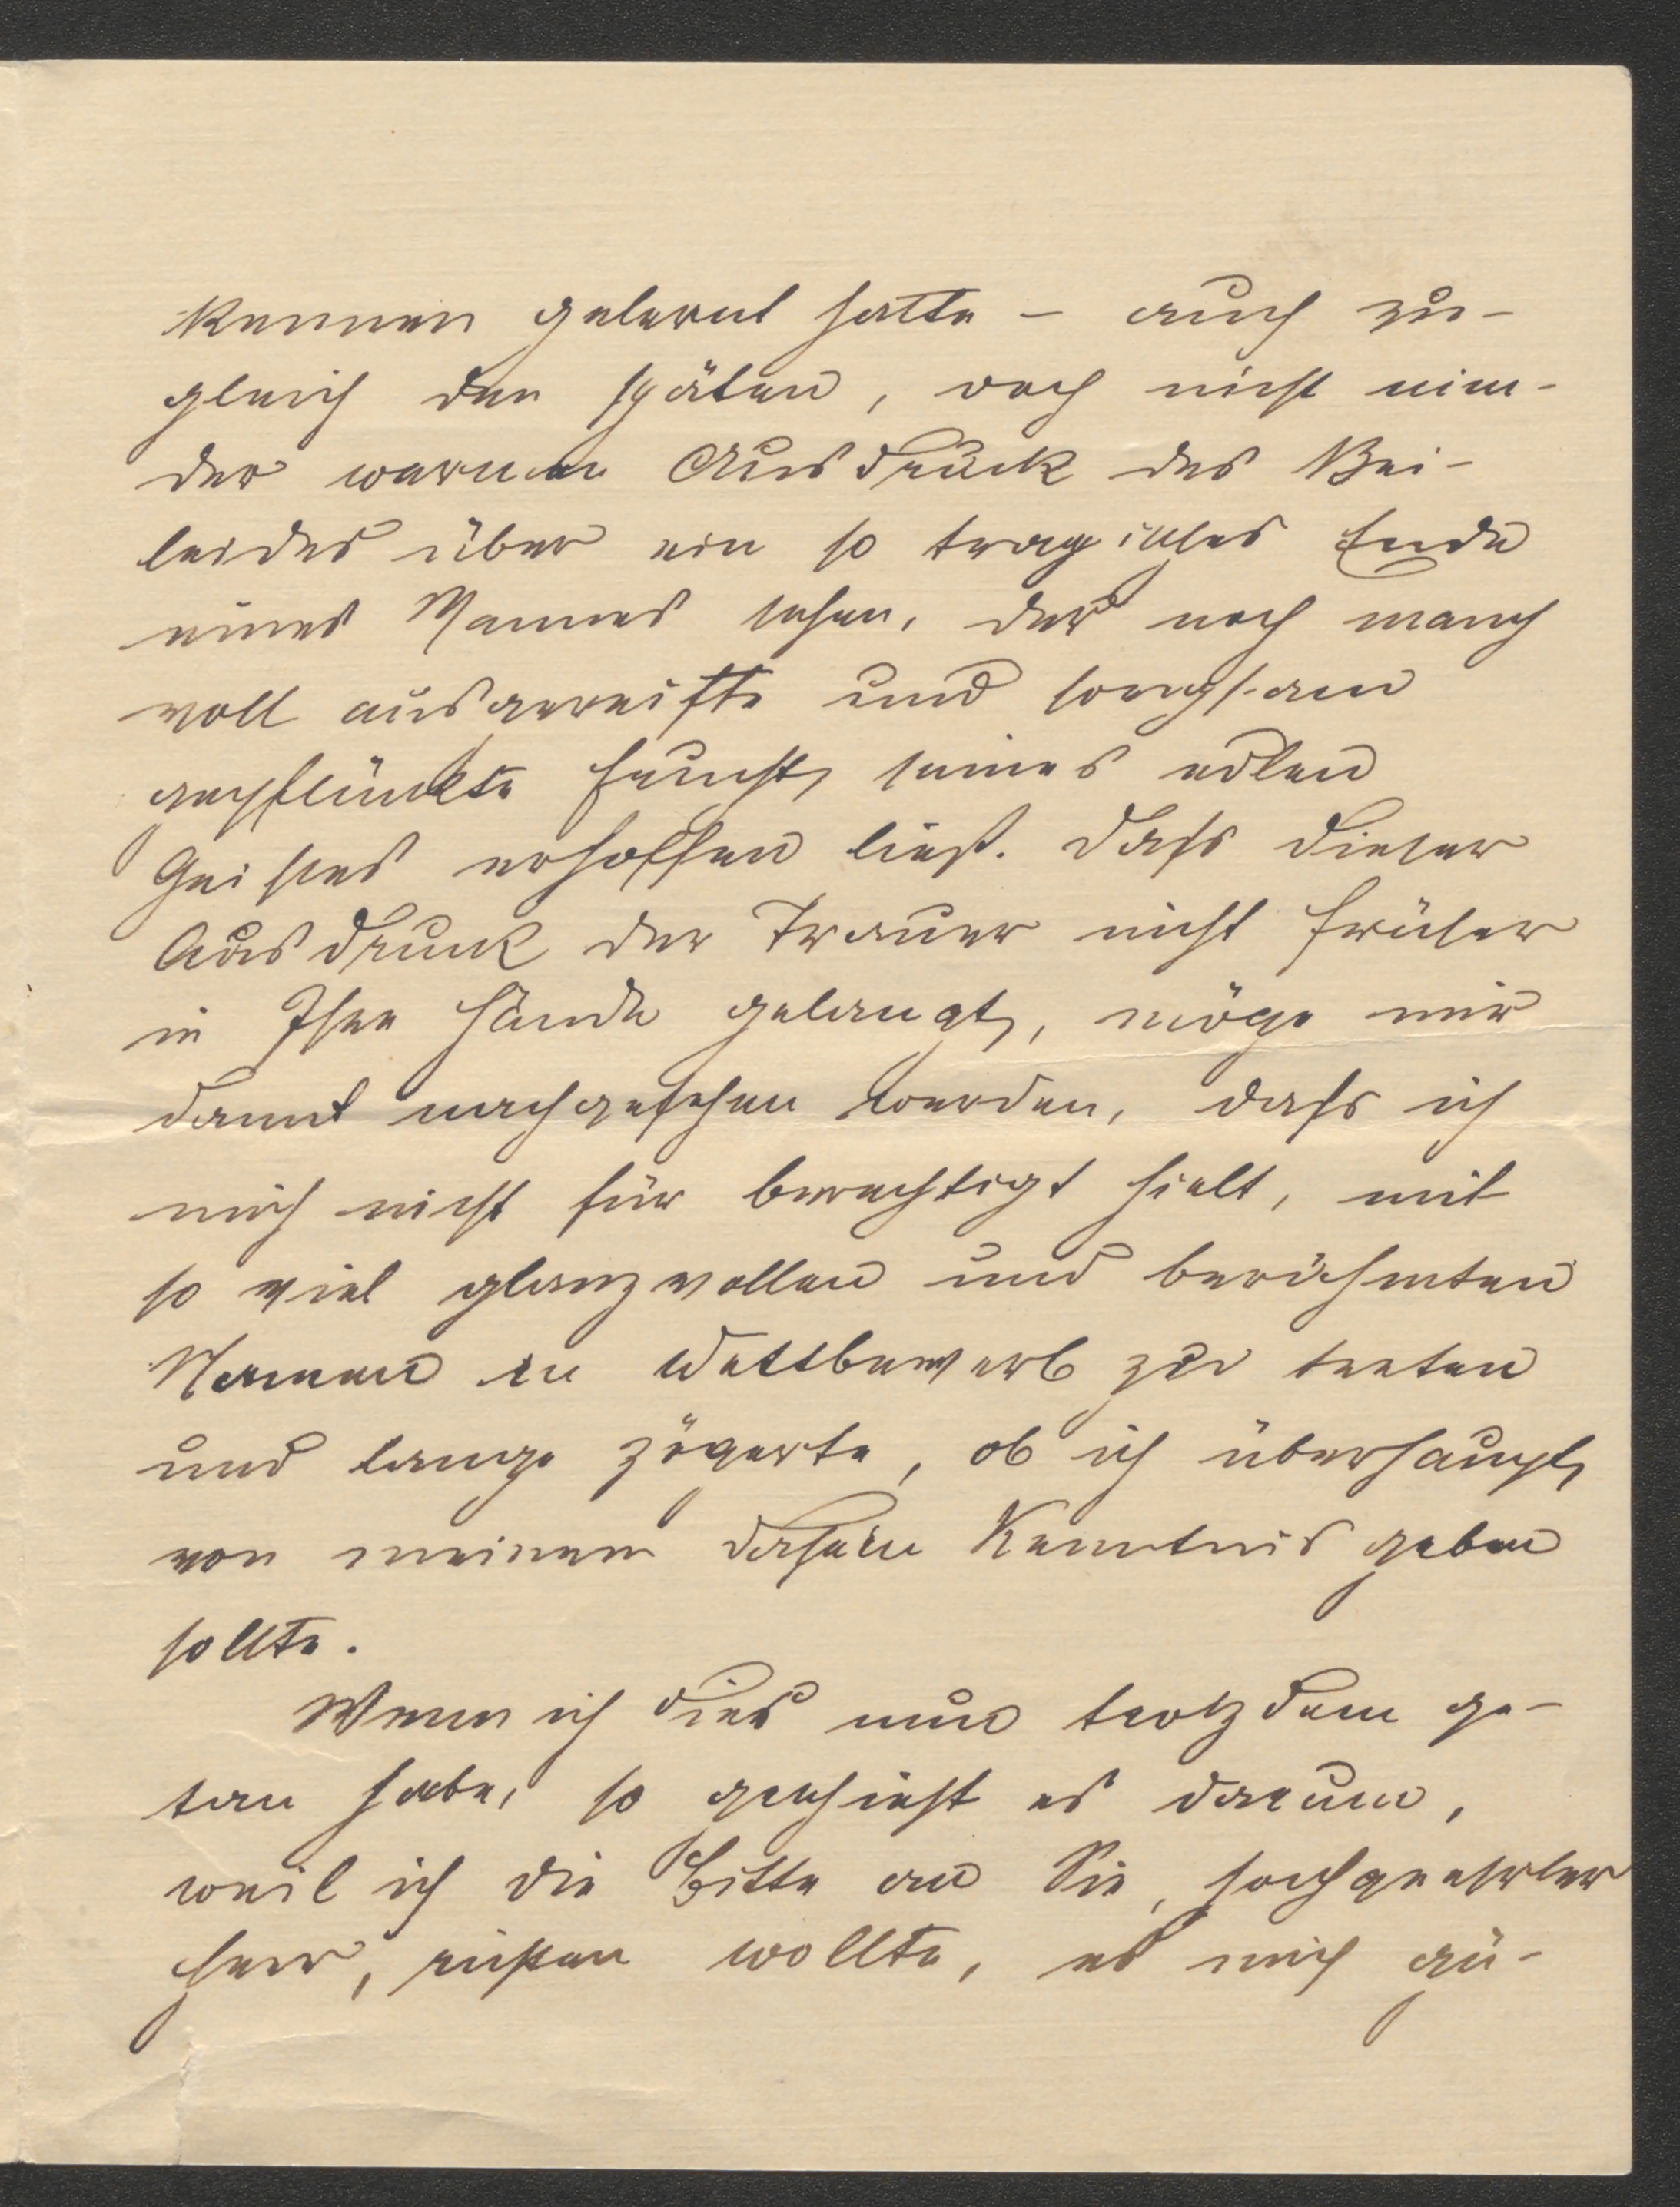 kennen gelernt hatte – auch zu-
gleich den späten, doch nicht min-
der warmen Ausdruck des Bei-
leides über ein so tragisches Ende
eines Mannes sehen, der noch manch
voll ausgereifte und sorgsam
gepflückte Frucht seines edlen
Geistes erhoffen ließ. Dass dieser
Ausdruck der Trauer nicht früher
in Ihre Hände gelangt, möge mir
damit nachgesehen werden, dass ich
mich nicht für berechtigt hielt, mit
so viel glanzvollen und berühmten
Namen in Wettbewerb zu treten
und lange zögerte, ob ich überhaupt
von meinem Dasein Kenntnis geben
sollte.
Wenn ich dies nun trotzdem ge-
tan habe, so geschieht es darum,
weil ich die Bitte an Sie, hochgeehrter
Herr, richten wollte, es mich gü-